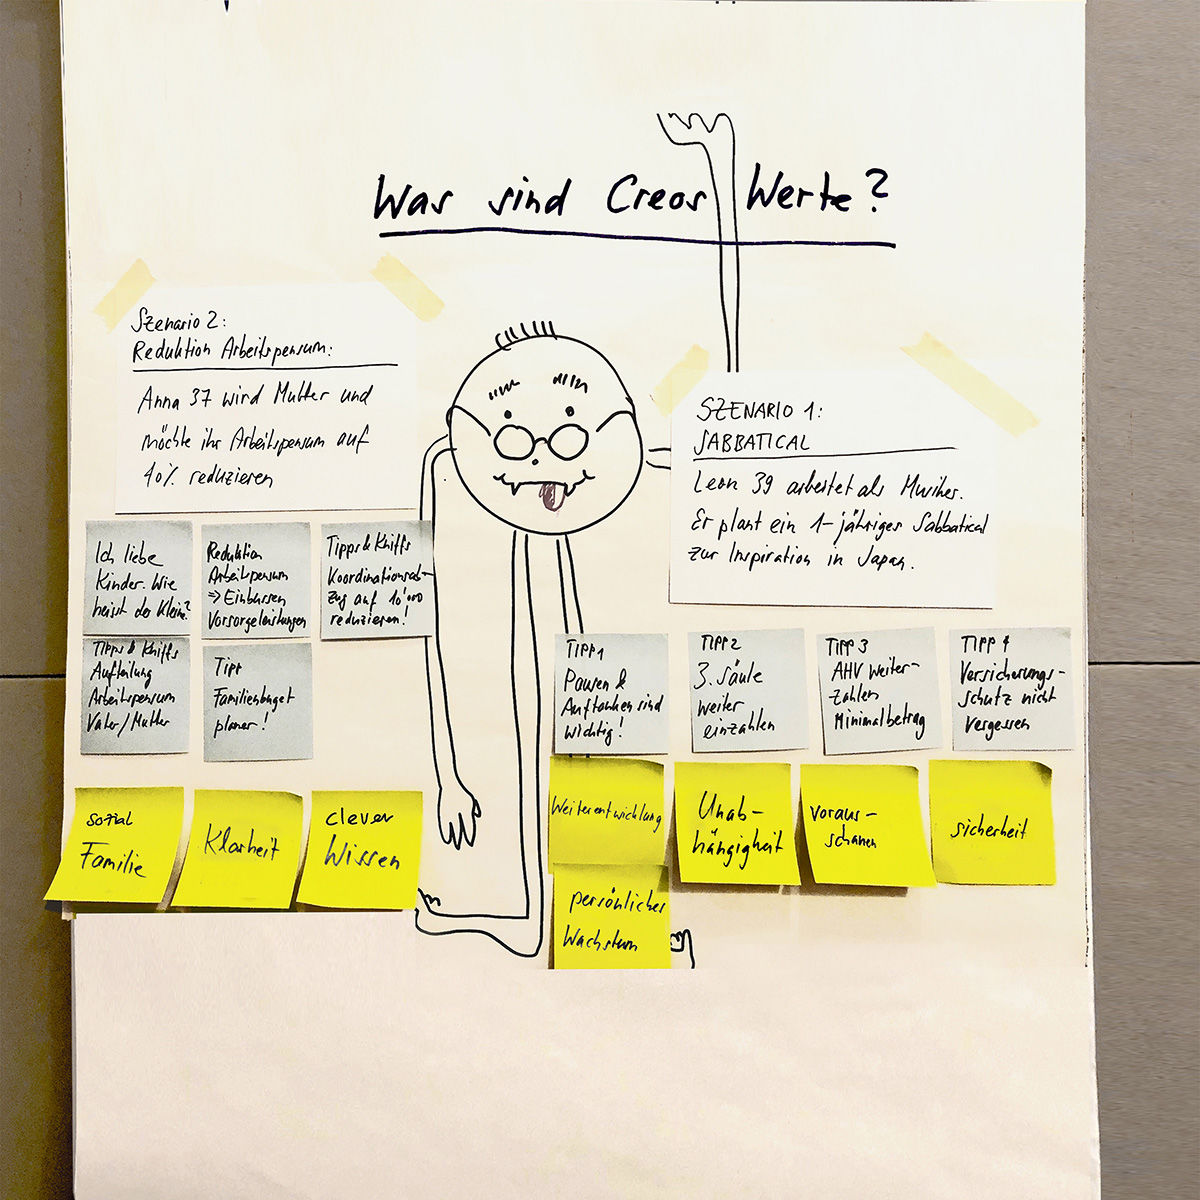 Was sind Creos Werte?
Szenario 2:
Reduktion Arbeitspensum:
Anna 37 wird Mutter und
möchte ihr Arbeitspensum auf
40% reduzieren
SZENARIO 1:
SABBATICAL
Leon 39 arbeitet als Musiker.
Er plant ein 1-jähriges Sabbatical
zur Inspiration in Japan.
Ich liebe
Kinder. Wie
heisst der Kleine?
Reduktion
Arbeitspensum
=> Einbussen
Vorsorgeleistungen
Tipps & Kniffs
Koordinationsab-
zug auf 10'000
reduzieren!
Tipps & Kniffs
Aufteilung
Arbeitspensum
Vater/Mutter
Tipp
Familienbuget
planer!
TIPP 1
Pausen &
Auftanken sind
wichtig!
TIPP 2
3. Säule
weiter
einzahlen
TIPP 3
AHV weiter-
zahlen
Minimalbetrag
TIPP 4
Versicherungs-
schutz nicht
vergessen
sozial
Familie
Klarheit
clever
Wissen
Weiterentwicklung
persönliches
Wachstum
Unab-
hängigkeit
voraus-
schauen
sicherheit